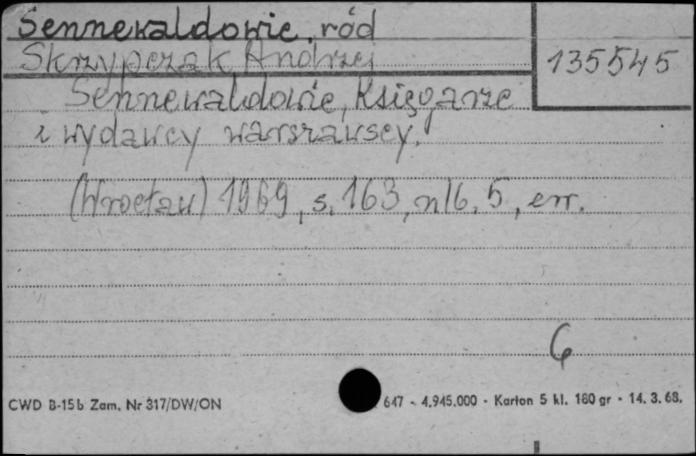 Sennewaldowie, ród
Skrzypczak Andrzej
135545
Sennewaldowie, Księgarze
i wydawcy warszawscy.
(Wrocław) 1969, s. 163, nlb. 5, err.
6
CWD B-15b Zam. Nr 317/DW/ON
647 - 4.945.000 - Karton 5 kl. 180 gr - 14. 3. 68.